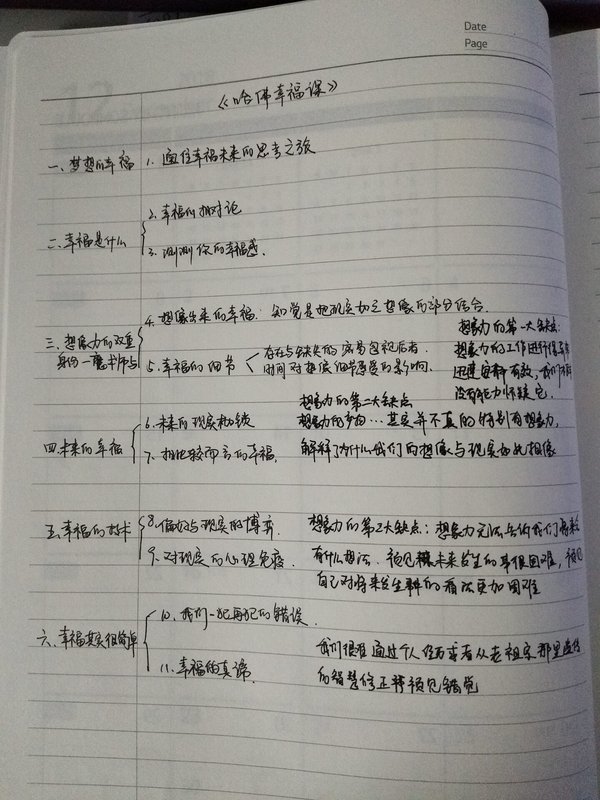 Date
Page
《哈佛幸福课》
一、梦想的幸福 1. 通往幸福未来的思考之旅
2. 幸福的相对论
二、幸福是什么
3. 测测你的幸福感.
4. 想像出来的幸福: 知觉是把现实加之想像的部分结合.
想象力的第一大缺点:
三、想像力的双重
身份—魔术师与
5. 幸福的细节
存在与缺失的 容易忽视后者.
时间对想像细节厚度的影响.
想象力的工作进行得非常
迅速安静有效, 我们
没有能力怀疑它.
想象力的第二大缺点
6. 未来的现实枷锁 想象力的梦幻…其实并不真的特别有想象力,
四.未来的幸福
7. 相比较而言的幸福. 解释了为什么我们的想像与现实如此相像
8. 偏好与现实的博弈. 想象力的第三大缺点: 想象力无法告诉我们将来会
五.幸福的技术
9. 对现实的心理免疫. 有什么想法. 预见未来发生的事很困难, 预见
自己对将来发生事的看法更加困难
10. 我们一犯再犯的错误.
六、幸福其实很简单
11. 幸福的真谛.
我们很难通过个人经历或者从老祖宗那里遗传
的智慧修正预见错觉